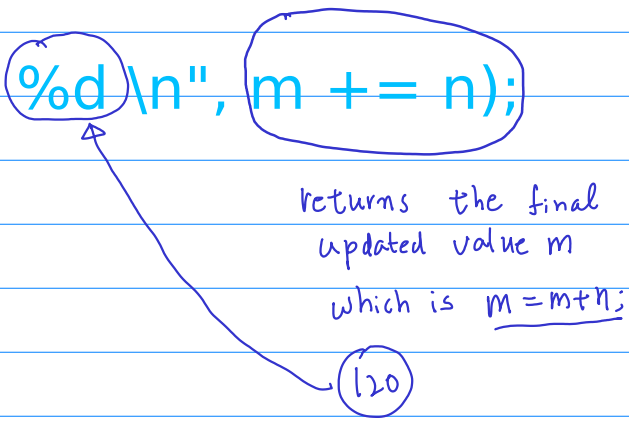 %d\n", m += n);
returns the final
updated value m
which is m=m+n;
120